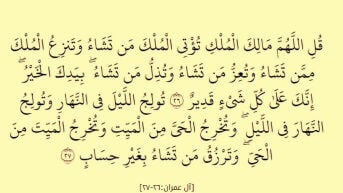 قُلِ اللَّهُمَّ مَالِكَ الْمُلْكِ تُؤْتِي الْمُلْكَ مَن تَشَاءُ وَتَنزِعُ الْمُلْكَ
مِمَّن تَشَاءُ وَتُعِزُّ مَن تَشَاءُ وَتُذِلُّ مَن تَشَاءُ ۖ بِيَدِكَ الْخَيْرُ ۖ
إِنَّكَ عَلَىٰ كُلِّ شَيْءٍ قَدِيرٌ ۝٢٦ تُولِجُ اللَّيْلَ فِي النَّهَارِ وَتُولِجُ
النَّهَارَ فِي اللَّيْلِ ۖ وَتُخْرِجُ الْحَيَّ مِنَ الْمَيِّتِ وَتُخْرِجُ الْمَيِّتَ مِنَ
الْحَيِّ ۖ وَتَرْزُقُ مَن تَشَاءُ بِغَيْرِ حِسَابٍ ۝٢٧
[آل عمران:٢٦-٢٧]